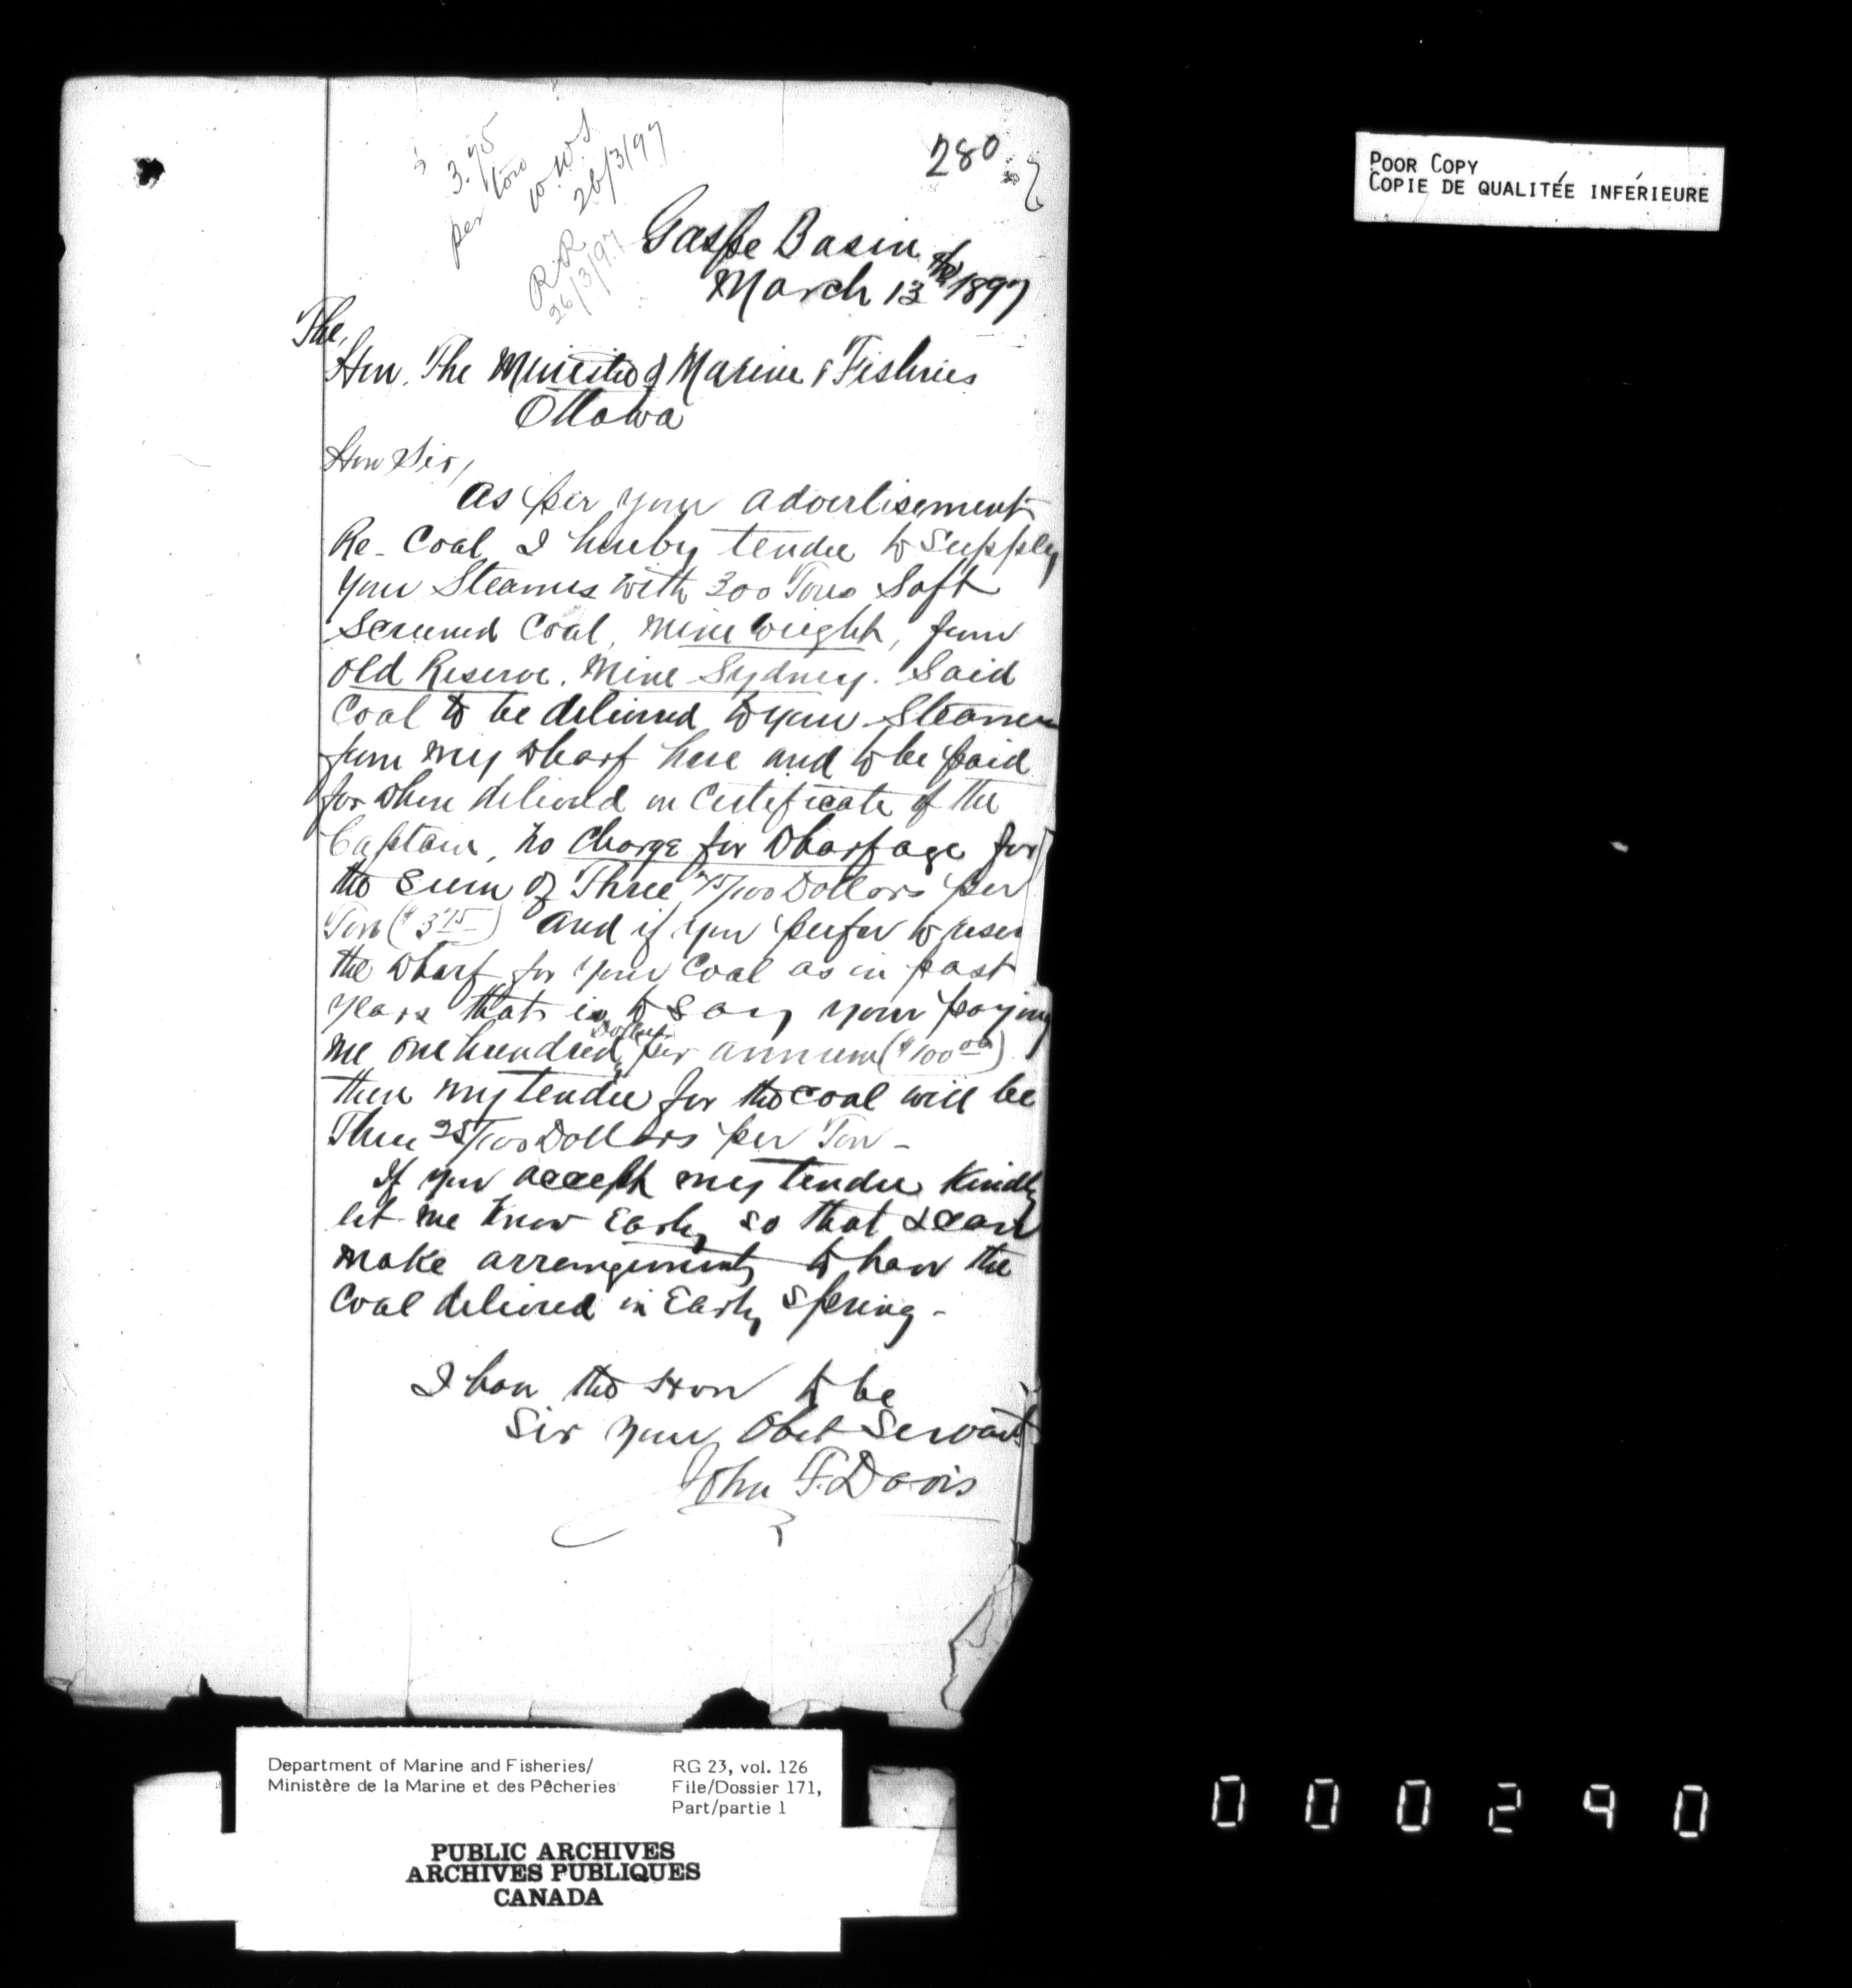 280
3.75
per ton
W.W.S
26/3/97
R.R
26/3/97
Gaspe Basin
March 13th 1897
The,
Hon. The Minister of Marine & Fisheries
Ottawa
Hon Sir,
As per your advertisement
Re- Coal I hereby tender to Supply
your Steamers with 300 Tons Soft
Screened Coal, mine weight, from
Old Reserve. Mine Sydney. Said
Coal to be delivered to your Steamers
from my wharf here and to be paid
for when delivered on Certificate of the
Captain, no charge for wharfage for
the sum of Three 75/100 Dollars per
Ton ($3.75) and if you prefer to use
the wharf for your Coal as in past
years that is to say your paying
me one hundred Dollars per annum ($100.00)
then my tender for the coal will be
Three 25/100 Dollars per Ton -
If you accept my tender Kindly
let me know Early so that I can
make arrangements to have the
Coal delivered in Early Spring -
I have the Hon to be
Sir your Obet Servant
John F. Davis
POOR COPY
COPIE DE QUALITÉE INFÉRIEURE
Department of Marine and Fisheries/
Ministère de la Marine et des Pêcheries
RG 23, vol. 126
File/Dossier 171,
Part/partie 1
PUBLIC ARCHIVES
ARCHIVES PUBLIQUES
CANADA
000290